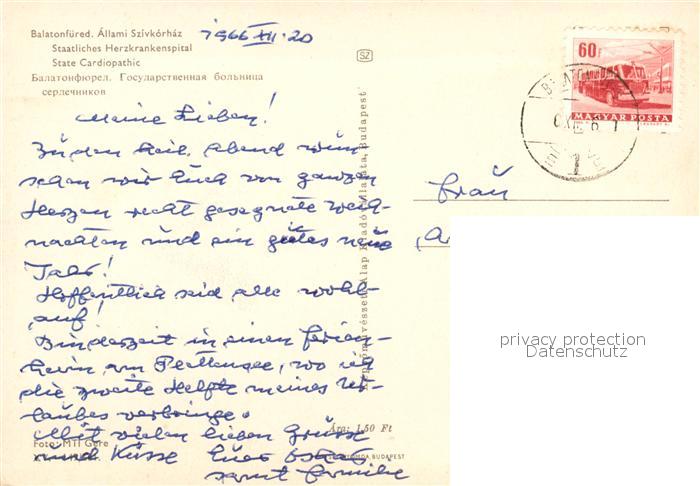 Balatonfüred. Állami Szívkórház
Staatliches Herzkrankenspital
State Cardiopathic
Балатонфюрел. Государственная больница
сердечников
1966 XII. 20
Meine Lieben!
Zu den heil. Abend wün-
schen wir Euch von ganzem
Herzen recht gesegnete Weih-
nachten und ein gutes neue
Jahr!
Hoffentlich seid alle wohl-
auf!
Bin derzeit in einen Ferien-
heim am Plattensee, wo ich
die zweite Hälfte meines Ur-
laubes verbringe.
Mit vielen lieben Grüsse
und Küsse Euer
samt Familie
Foto: MTI Gere
Ára: 1,50 Ft
BUDAPEST
Képzőművészeti Alap Kiadóvállalata, Budapest
SZ
60f
MAGYAR POSTA
Frau
privacy protection
Datenschutz